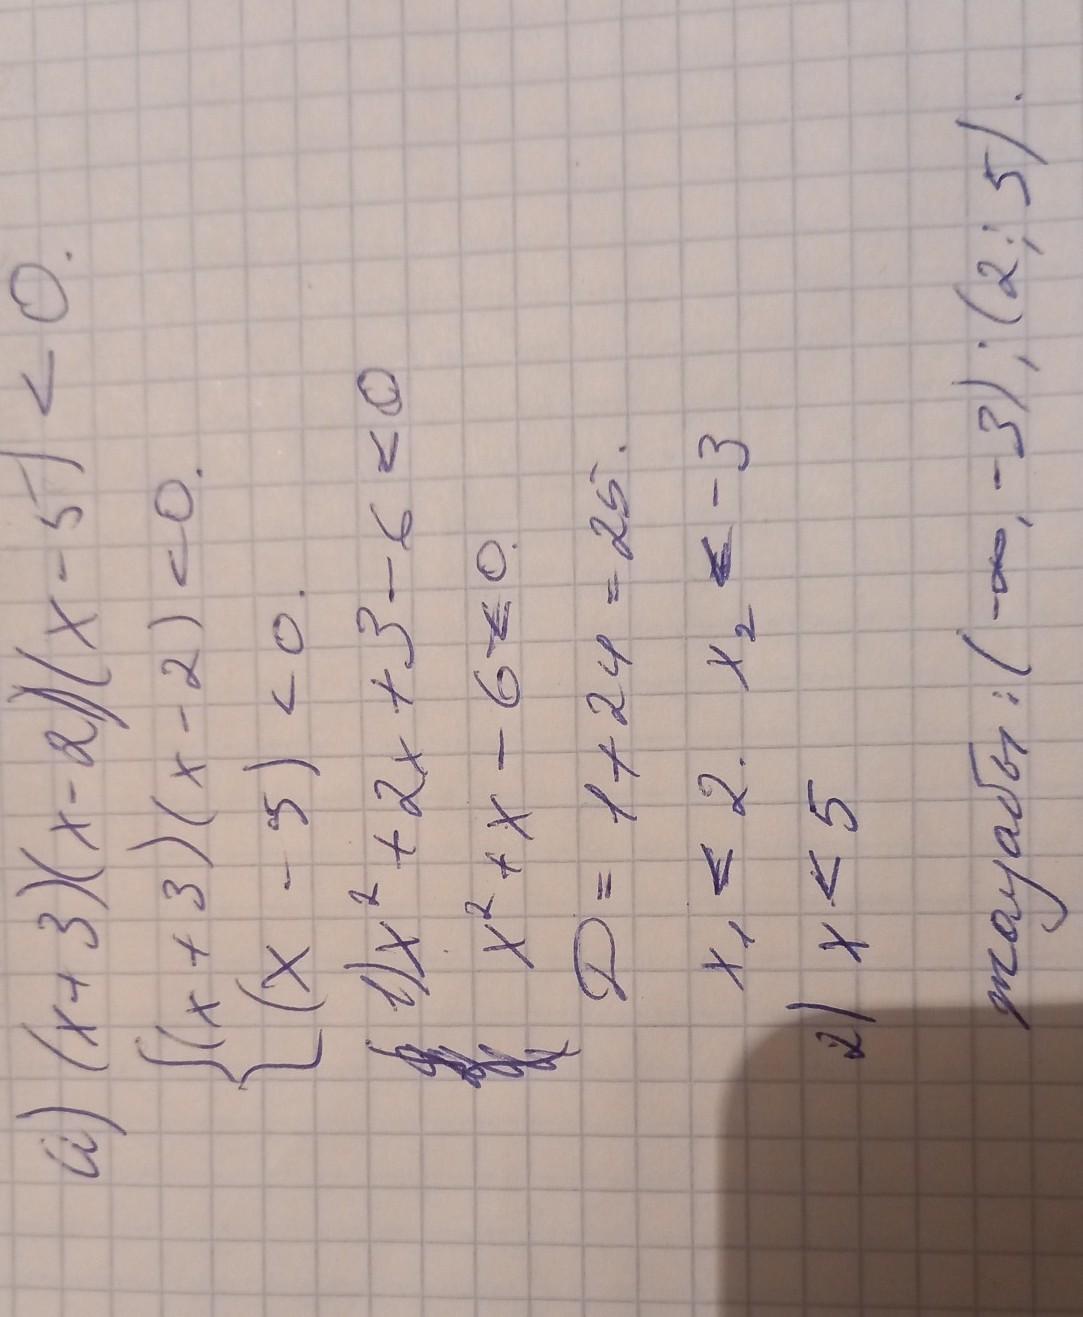 а) (x+3)(x-2)(x-5) < 0.
{(x+3)(x-2) < 0.
(x-5) < 0.
1) x² + 2x + 3 - 6 < 0
x² + x - 6 < 0.
D = 1 + 24 = 25.
x₁ < 2. x₂ < -3
2) x < 5
жауабы: (-∞, -3); (2; 5).